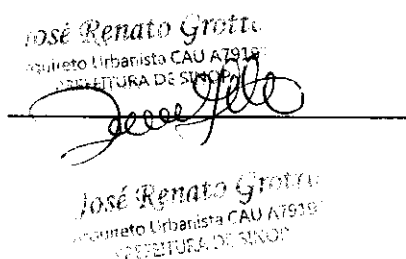 José Renato Grotto
Urbanista CAU A7919
PREFEITURA DE SINOP
José Renato Grotto
Urbanista CAU A7919
PREFEITURA DE SINOP